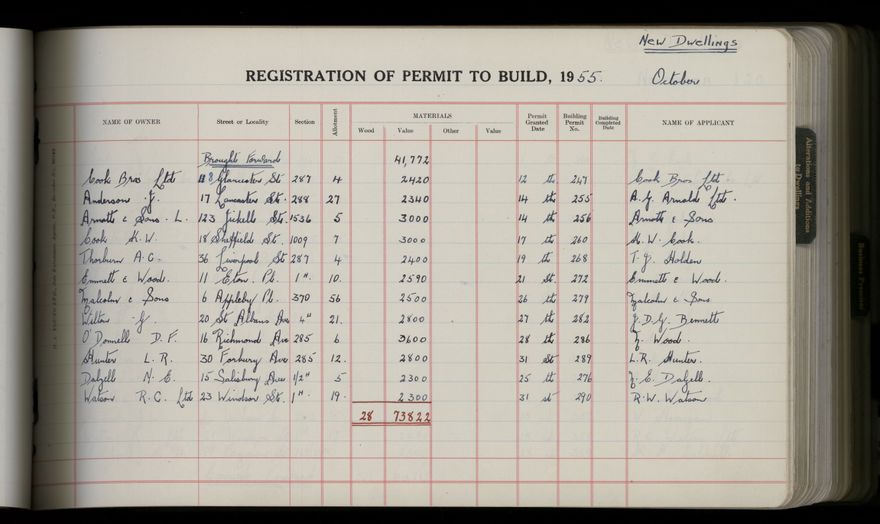 New Dwellings
REGISTRATION OF PERMIT TO BUILD, 1955. October
NAME OF OWNER Street or Locality Section Allotment MATERIALS Permit Granted Date Building Permit No. Building Completed Date NAME OF APPLICANT
Wood Value Other Value
Brought Forward 41,772
Cook Bros Ltd 8 Gloucester St 287 4 2420 12 th 247 Cook Bros Ltd
Anderson J. 17 Lancaster St. 288 27 2340 14 th 255 A.G. Arnolds Ltd.
Arnott & Sons. L. 123 Jickell St. 1536 5 3000 14 th 256 Arnott & Sons
Cook H.W. 18 Sheffield St. 1009 7 3000 17 th 260 H.W. Cook.
Thorburn A.G. 36 Liverpool St 287 4 2400 19 th 268 T.J. Holden
Emmett & Wood. 11 Eton Pl. 1". 10. 2590 21 st. 272 Emmett & Wood.
Malcolm & Sons 6 Appleby Pl. 370 56 2500 26 th 279 Malcolm & Sons
Wilton J. 20 St Albans Ave 4" 21. 2800 27 th 282 J.D.G. Bennett
O'Donnell D.F. 16 Richmond Ave 285 6 3600 28 th 286 Wood.
Hunter L.R. 30 Forbury Ave 285 12. 2800 31 st 289 L.R. Hunter.
Dalzell N.E. 15 Salisbury Ave 1/2" 5 2300 25 th 276 E. Dalzell.
Watson R.G. Ltd 23 Windsor St. 1". 19. 2300 31 st 290 R.W. Watson
28 73822
Alterations and Additions to Dwellings
Business Premises